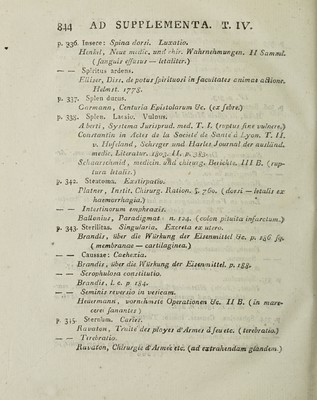 844 AD SUPPLEMENTA. T. IV.
p. 336. Insere: Spina dorsi. Luxatio.
Henkel, Neue medic. und chir. Wahrnehmungen. II Samml.
(sanguis effusus — letaliter.)
— — Spiritus ardens.
Filiser, Diss. de potus spirituosi in facultates animae actione.
Helmst. 1778.
p. 337. Splen durus.
Garmann, Centuria Epistolarum &c. (ex febre.)
p. 338. Splen. Laesio. Vulnus.
Alberti, Systema Jurisprud. med. T. I. (ruptus sine vulnere.)
Constantin in Actes de la Société de Santé à Lyon. T. II.
v. Hufeland, Schreger und Harles Journal der ausländ.
medic. Literatur. 1803. II. p. 385.
Schaarschmid, medicin. und chirurg. Berichte. III B. (ruptura
letalis.)
p. 342. Steatoma. Exstirpatio.
Platner, Instit. Chirurg. Ration. §. 760. (dorsi — letalis ex
haemorrhagia.)
— — Intestinorum emphraxis.
Ballonius, Paradigmat. n. 124. (colon pituita infarctum.)
p. 343. Sterilitas. Singularia. Excreta ex utero.
Brandis, über die Würkung der Eisenmittel &c. p. 186 sq.
(membranae — cartilaginea.)
— — Caussae: Cachexia.
Brandis, über die Würkung der Eisenmittel. p. 188.
— — Scrophulosa constitutio.
Brandis, l. c. p 184.
— — Seminis reversio in vesicam.
Heuermann, vornehmste Operationen &c. II B. (in marcescere
sanantes)
p. 345. Sternum. Caries.
Ravaton, Traité des playes d'Armes à feu etc. (terebratio.)
— — Terebratio.
Ravaton, Chirurgie d'Armée etc. (ad extrahendam glandem.)